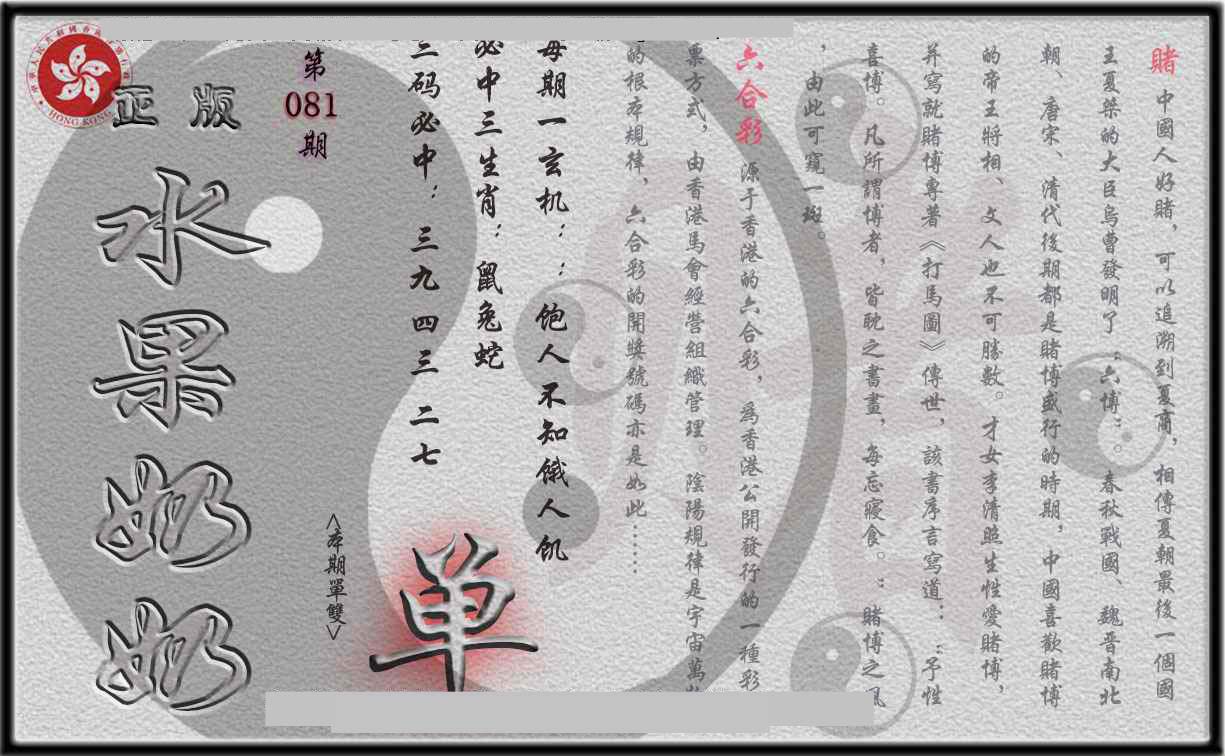 賭 中國人好賭，可以追溯到夏商，相傳夏朝最後一個國
王夏桀的大臣烏曹發明了“六博”。春秋戰國、魏晉南北
朝、唐宋、清代後期都是賭博盛行的時期，中國喜歡賭博
的帝王將相、文人也不可勝數。才女李清照生性愛賭博，
并寫就賭博專著《打馬圖》傳世，該書序言寫道：“予性
喜博。凡所謂博者，皆耽之晝畫，每忘寢食。”賭博之風
，由此可窺一斑。
六合彩 源于香港的六合彩，為香港公開發行的一種彩
票方式，由香港馬會經營組織管理。陰陽規律是宇宙萬物
的根本規律，六合彩的開獎號碼亦是如此……
每期一玄机：：飽人不知餓人飢
必中三生肖：鼠兔蛇
三码必中：三九 四三 二七
第
081
期
<本期單雙>
单
正版
水果奶奶
HONG KONG